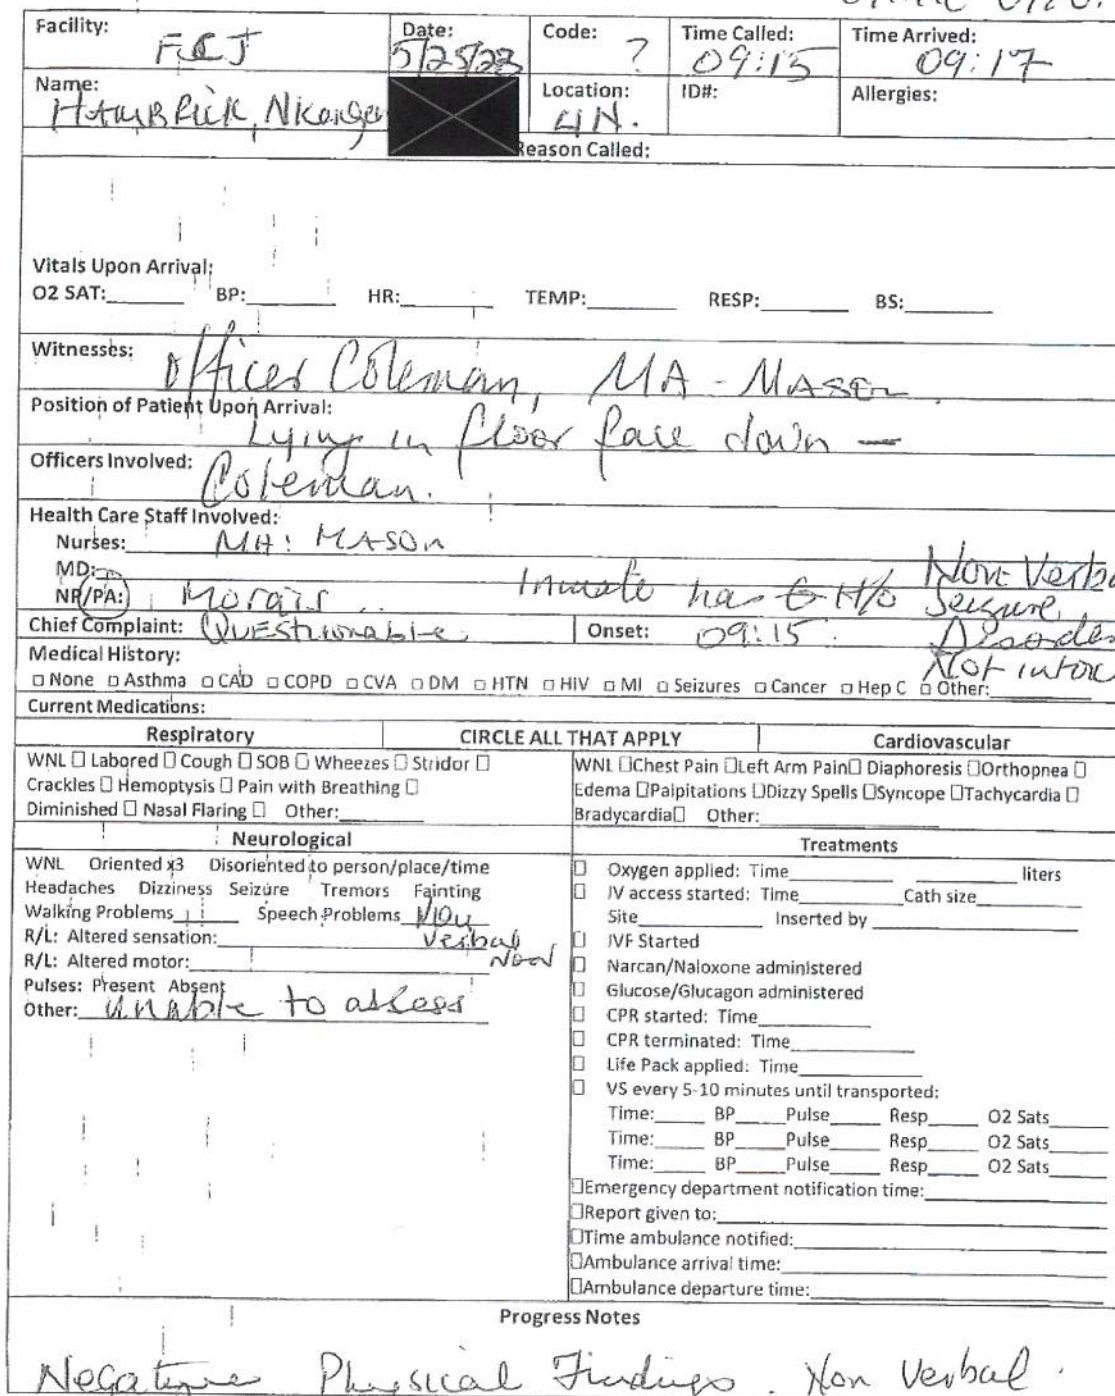 Facility: FCJ Date: 5/25/23 Code: ? Time Called: 09:15 Time Arrived: 09:17
Name: HAMBRICK, Location: 4N. ID#: Allergies:
Reason Called:
Vitals Upon Arrival:
O2 SAT: BP: HR: TEMP: RESP: BS:
Witnesses: Officer Coleman, MA - MASON
Position of Patient Upon Arrival:
Lying in floor face down —
Officers Involved: Coleman.
Health Care Staff Involved:
Nurses: MA: MASON
MD: Non Verba
NP/PA: Morais .. Inmate has H/o Seizure
Chief Complaint: Questionable Onset: 09:15. Disorder
Medical History: Not intox
□ None □ Asthma □ CAD □ COPD □ CVA □ DM □ HTN □ HIV □ MI □ Seizures □ Cancer □ Hep C □ Other:
Current Medications:
Respiratory CIRCLE ALL THAT APPLY Cardiovascular
WNL □ Labored □ Cough □ SOB □ Wheezes □ Stridor □
Crackles □ Hemoptysis □ Pain with Breathing □
Diminished □ Nasal Flaring □ Other:
WNL □Chest Pain □Left Arm Pain□ Diaphoresis □Orthopnea □
Edema □Palpitations □Dizzy Spells □Syncope □Tachycardia □
Bradycardia□ Other:
Neurological
WNL Oriented x3 Disoriented to person/place/time
Headaches Dizziness Seizure Tremors Fainting
Walking Problems Speech Problems Non
R/L: Altered sensation: Verbal
R/L: Altered motor: Non
Pulses: Present Absent
Other: unable to assess
Treatments
□ Oxygen applied: Time liters
□ IV access started: Time Cath size
Site Inserted by
□ IVF Started
□ Narcan/Naloxone administered
□ Glucose/Glucagon administered
□ CPR started: Time
□ CPR terminated: Time
□ Life Pack applied: Time
□ VS every 5-10 minutes until transported:
Time: BP Pulse Resp O2 Sats
Time: BP Pulse Resp O2 Sats
Time: BP Pulse Resp O2 Sats
□Emergency department notification time:
□Report given to:
□Time ambulance notified:
□Ambulance arrival time:
□Ambulance departure time:
Progress Notes
Negative Physical Findings. Non Verbal.